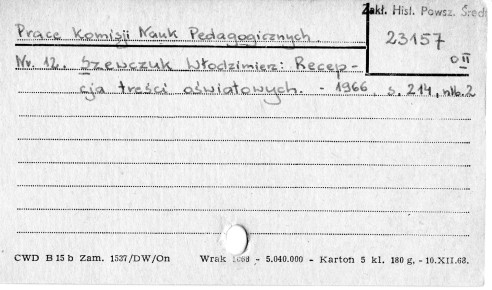 Zakł. Hist. Powsz. Śred
Prace Komisji Nauk Pedagogicznych.
23157
0 II
Nr. 12. Szewczuk Włodzimierz: Recep-
cja treści oświatowych. - 1966, s. 214, nlb. 2
CWD B 15 b Zam. 1537/DW/On Wrak - 5.040.000 - Karton 5 kl. 180 g. - 10.XII.68.